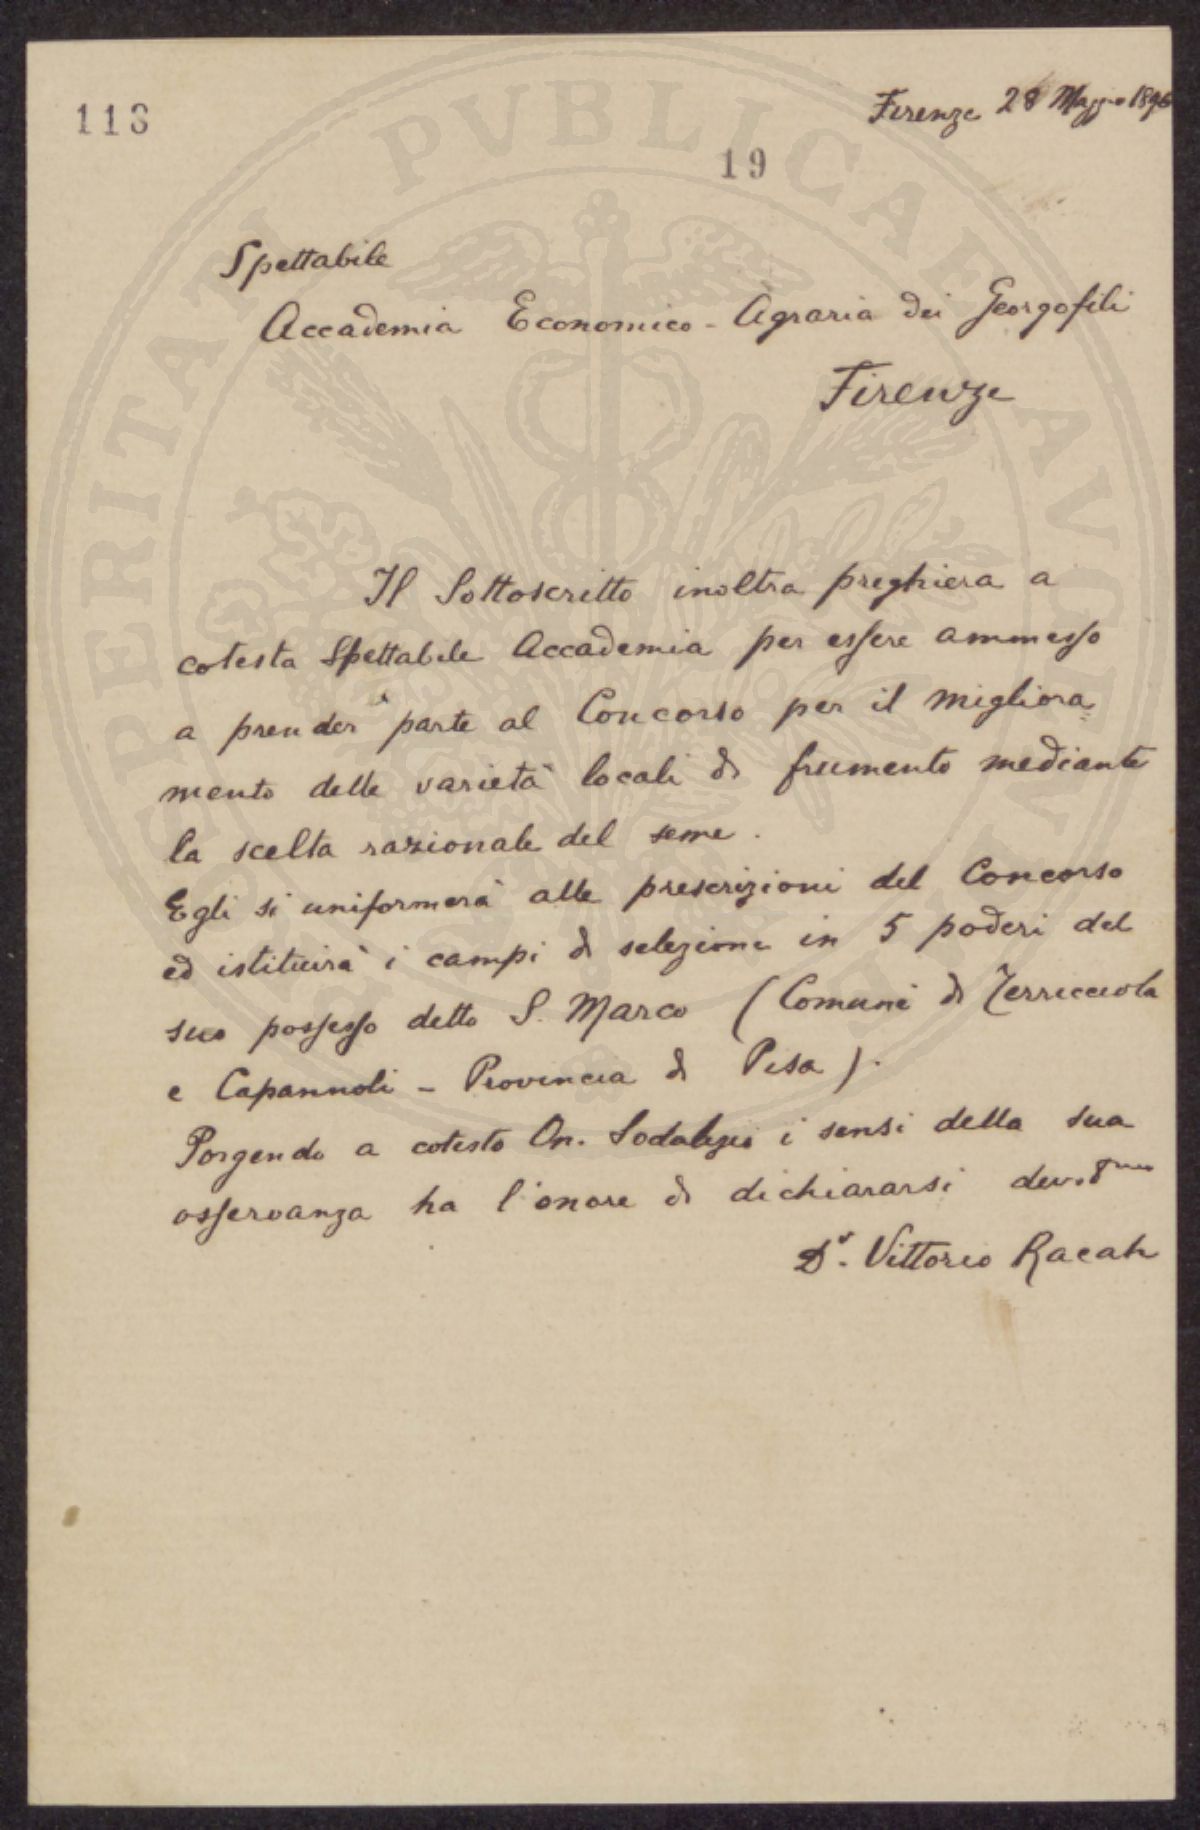 113
Firenze 28 Maggio 1896
19
Spettabile
Accademia Economico-Agraria dei Georgofili
Firenze
Il Sottoscritto inoltra preghiera a
cotesta Spettabile Accademia per essere ammesso
a prender parte al Concorso per il migliora
mento delle varietà locali di frumento mediante
la scelta razionale del seme.
Egli si uniformerà alle prescrizioni del Concorso
ed istituirà i campi di selezione in 5 poderi del
suo possesso detto S. Marco (Comuni di Terricciola
e Capannoli - Provincia di Pisa).
Porgendo a cotesto On. Sodalizio i sensi della sua
osservanza ha l'onore di dichiararsi
Dr. Vittorio Racah
PROSPERITATI PVBLICAE AVGENDAE